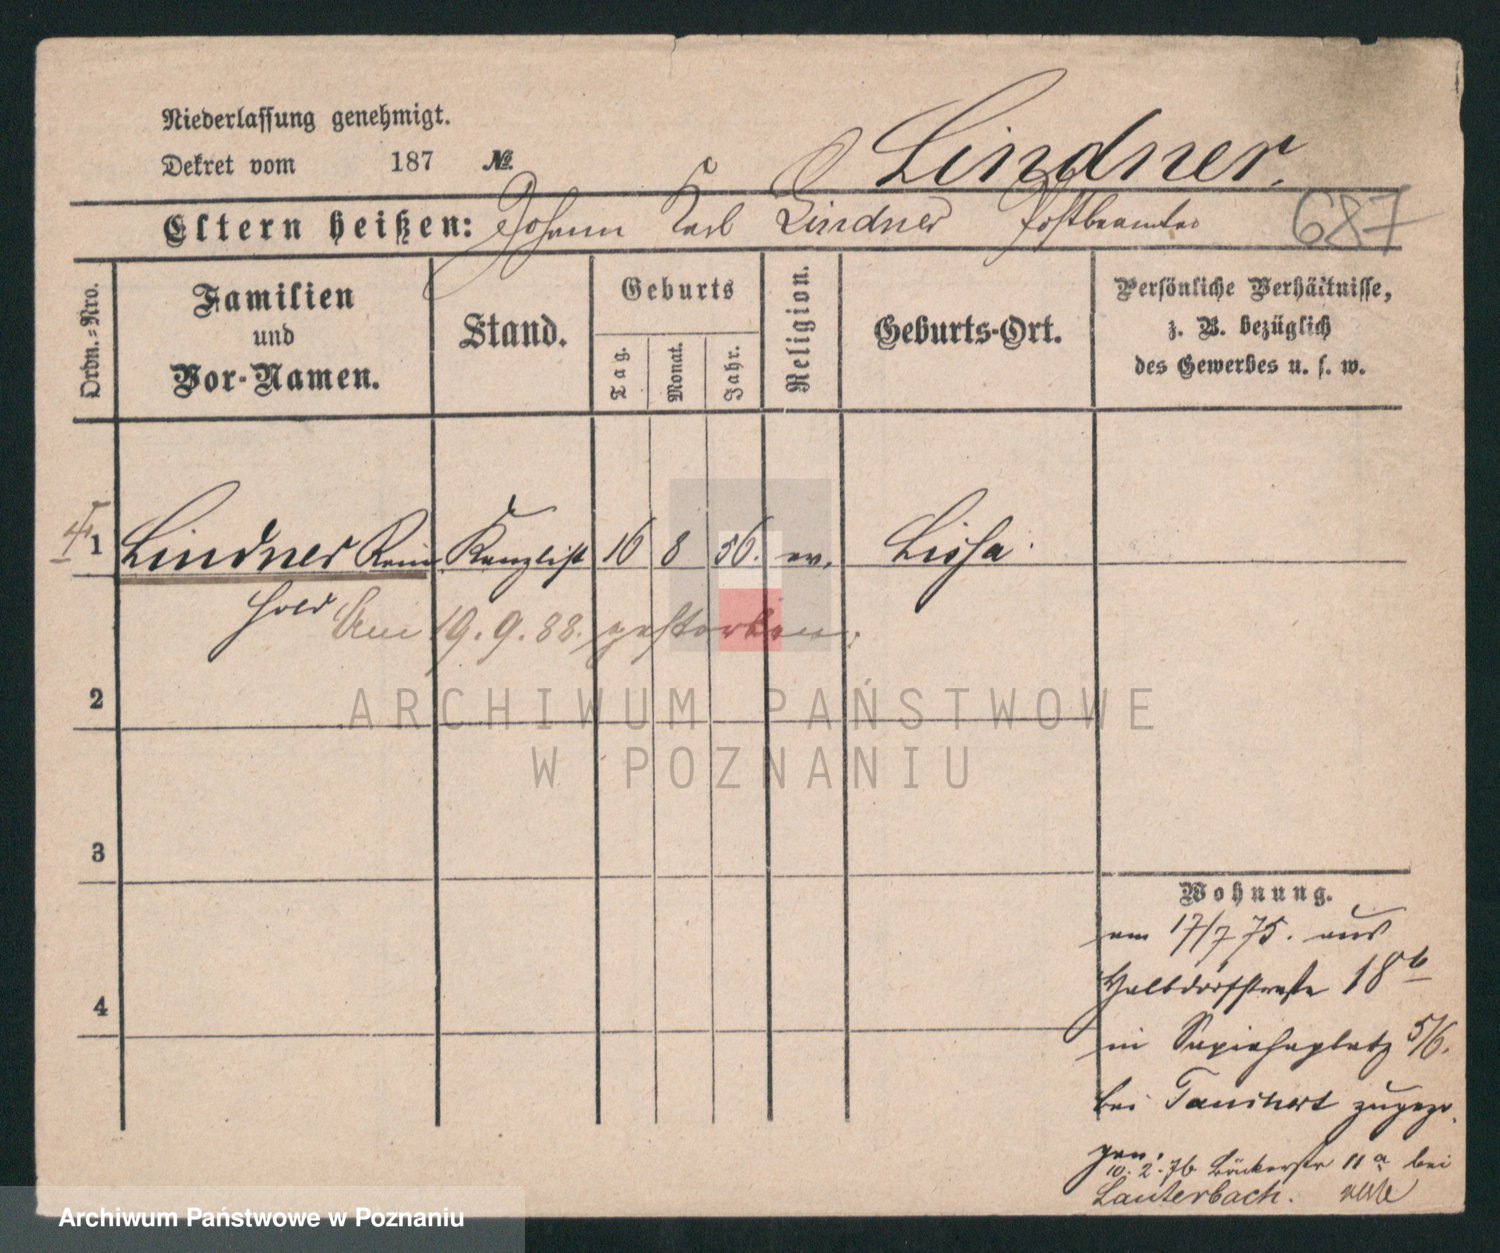 Niederlassung genehmigt.
Dekret vom 187 №
Lindner.
Eltern heißen: Johann Karl Lindner Postbeamter
687
Ordn.-Nro.
Familien
und
Vor-Namen.
Stand.
Geburts
Tag.
Monat.
Jahr.
Religion.
Geburts-Ort.
Persönliche Verhältnisse,
z. B. bezüglich
des Gewerbes u. s. w.
1 Lindner Rein Kanzlist 16 8 56. ev. Lissa.
hold Am 19. 9. 88. gestorben.
2
ARCHIWUM PAŃSTWOWE
W POZNANIU
3
Wohnung.
am 17/7 75. aus
Halbdorfstraße 18b
4
in Sapiehaplatz 5/6.
bei zugezo-
gen.
10. 2. 76 Bäckerstr 11a bei
Lauterbach.
Archiwum Państwowe w Poznaniu